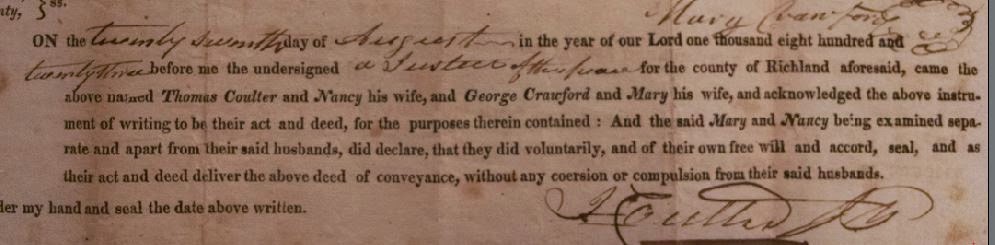 nty, } ss.
Mary Crawford
ON the twenty seventh day of August in the year of our Lord one thousand eight hundred and
twenty three before me the undersigned a Justice of the peace for the county of Richland aforesaid, came the
above named Thomas Coulter and Nancy his wife, and George Crawford and Mary his wife, and acknowledged the above instru-
ment of writing to be their act and deed, for the purposes therein contained : And the said Mary and Nancy being examined sepa-
rate and apart from their said husbands, did declare, that they did voluntarily, and of their own free will and accord, seal, and as
their act and deed deliver the above deed of conveyance, without any coersion or compulsion from their said husbands.
der my hand and seal the date above written.
Coulter